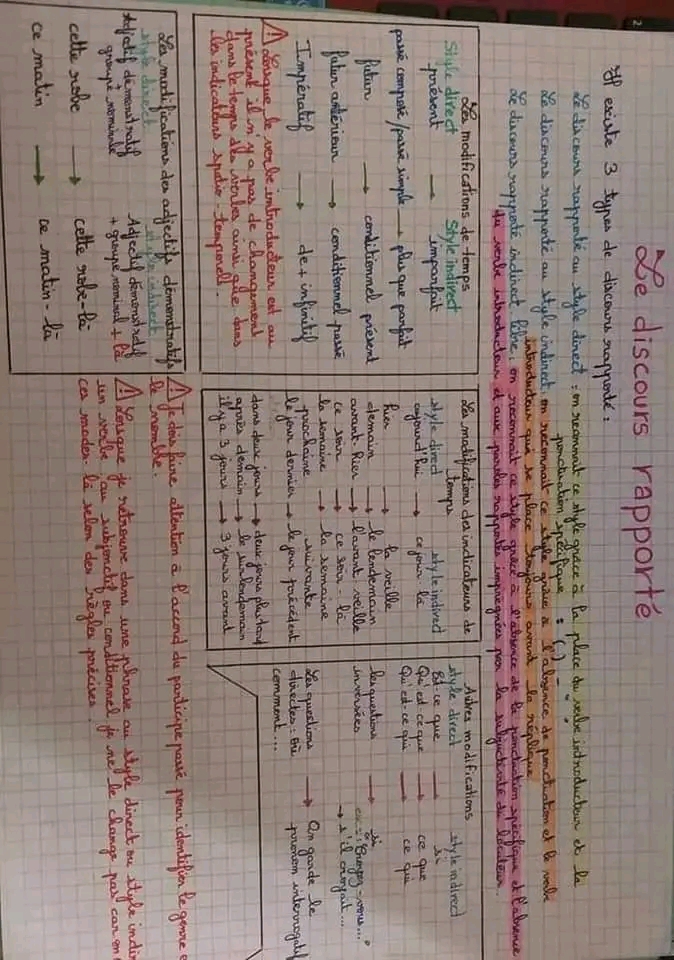 Le discours rapporté
Il existe 3 types de discours rapporté :
Le discours rapporté au style direct : on reconnait ce style grâce à la place du verbe introducteur et la
ponctuation spécifique
Le discours rapporté au style indirect on reconnait ce style grâce à l'absence de ponctuation et le verbe
introducteur qui se place toujours avant la réplique
Le discours rapporté indirect libre : on reconnait ce style grâce à l'absence de la ponctuation spécifique et l'absence
du verbe introducteur et aux paroles rapportées imprégnées par la subjectivité du locuteur.
Les modifications de temps
Style direct Style indirect
présent → imparfait
passé composé/passé simple → plus que parfait
futur → conditionnel présent
futur antérieur → conditionnel passé
Impératif → de + infinitif
⚠ Lorsque le verbe introducteur est au
présent il n'y a pas de changement
dans le temps des verbes ainsi que dans
les indicateurs spatio-temporell.
Les modifications des indicateurs de
temps
style direct style indirect
aujourd'hui → ce jour-là
hier → la veille
demain → le lendemain
avant-hier → l'avant-veille
ce soir → ce soir-là
la semaine → la semaine
prochaine suivante
le jour dernier → le jour précédent
dans deux jours → deux jours plus tard
après demain → le surlendemain
il y a 3 jours → 3 jours avant
Autres modifications
style direct style indirect
Est-ce que → si
Qu'est ce que → ce que
Qu'est-ce qui → ce qui
les questions → si
inversées ex: "Croyez-vous..."
→ s'il croyait...
Les questions → On garde le
directes : où pronom interrogatif
comment...
Les modifications des adjectifs démonstratifs
style direct style indirect
Adjectif démonstratif Adjectif démonstratif
+ groupe nominale + groupe nominal + là
cette robe → cette robe-là
ce matin → ce matin-là
⚠ Je dois faire attention à l'accord du participe passé pour identifier le genre e
le nombre.
⚠ Lorsque je retrouve dans une phrase au style direct ou style indir
un verbe au subjonctif ou conditionnel je ne le change pas car on
ces modes-là selon des règles précises.